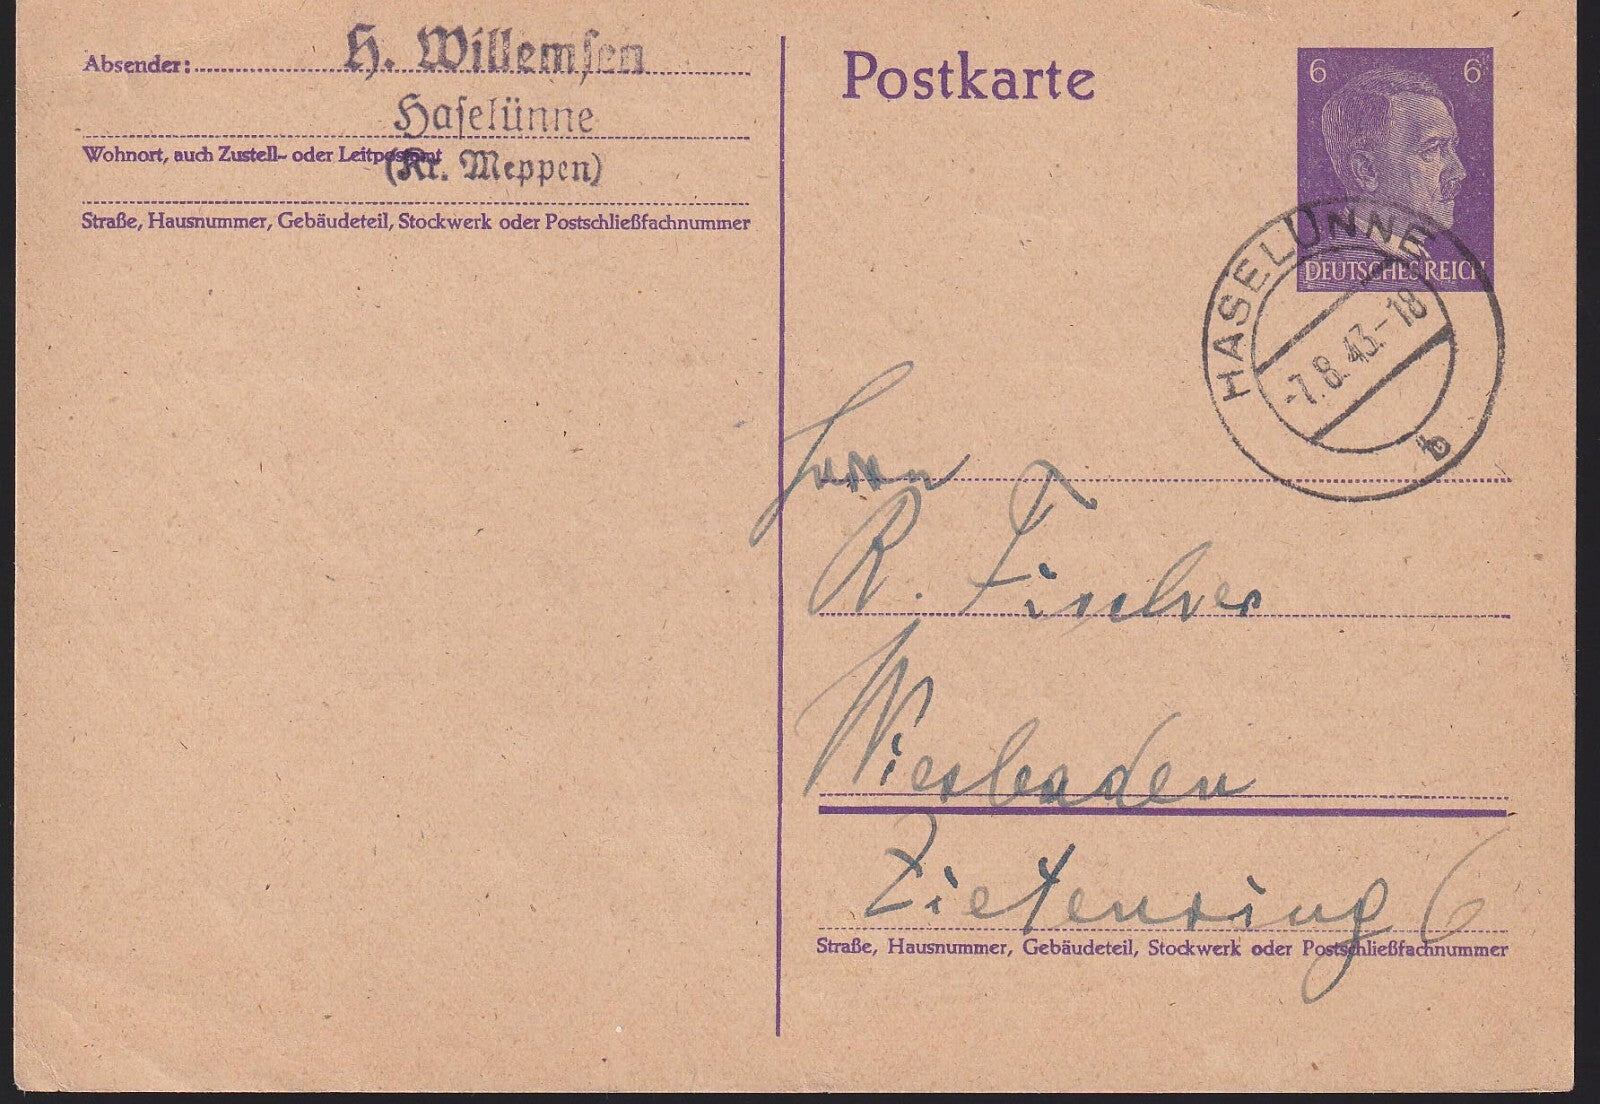 Absender: H. Willemsen
Haselünne
Wohnort, auch Zustell- oder Leitpostamt
(Kr. Meppen)
Straße, Hausnummer, Gebäudeteil, Stockwerk oder Postschließfachnummer
Postkarte
6 6
DEUTSCHES REICH
HASELÜNNE
-7.8.43.-18
b
Herrn
R. Fischer
Wiesbaden
Zietenring 6
Straße, Hausnummer, Gebäudeteil, Stockwerk oder Postschließfachnummer